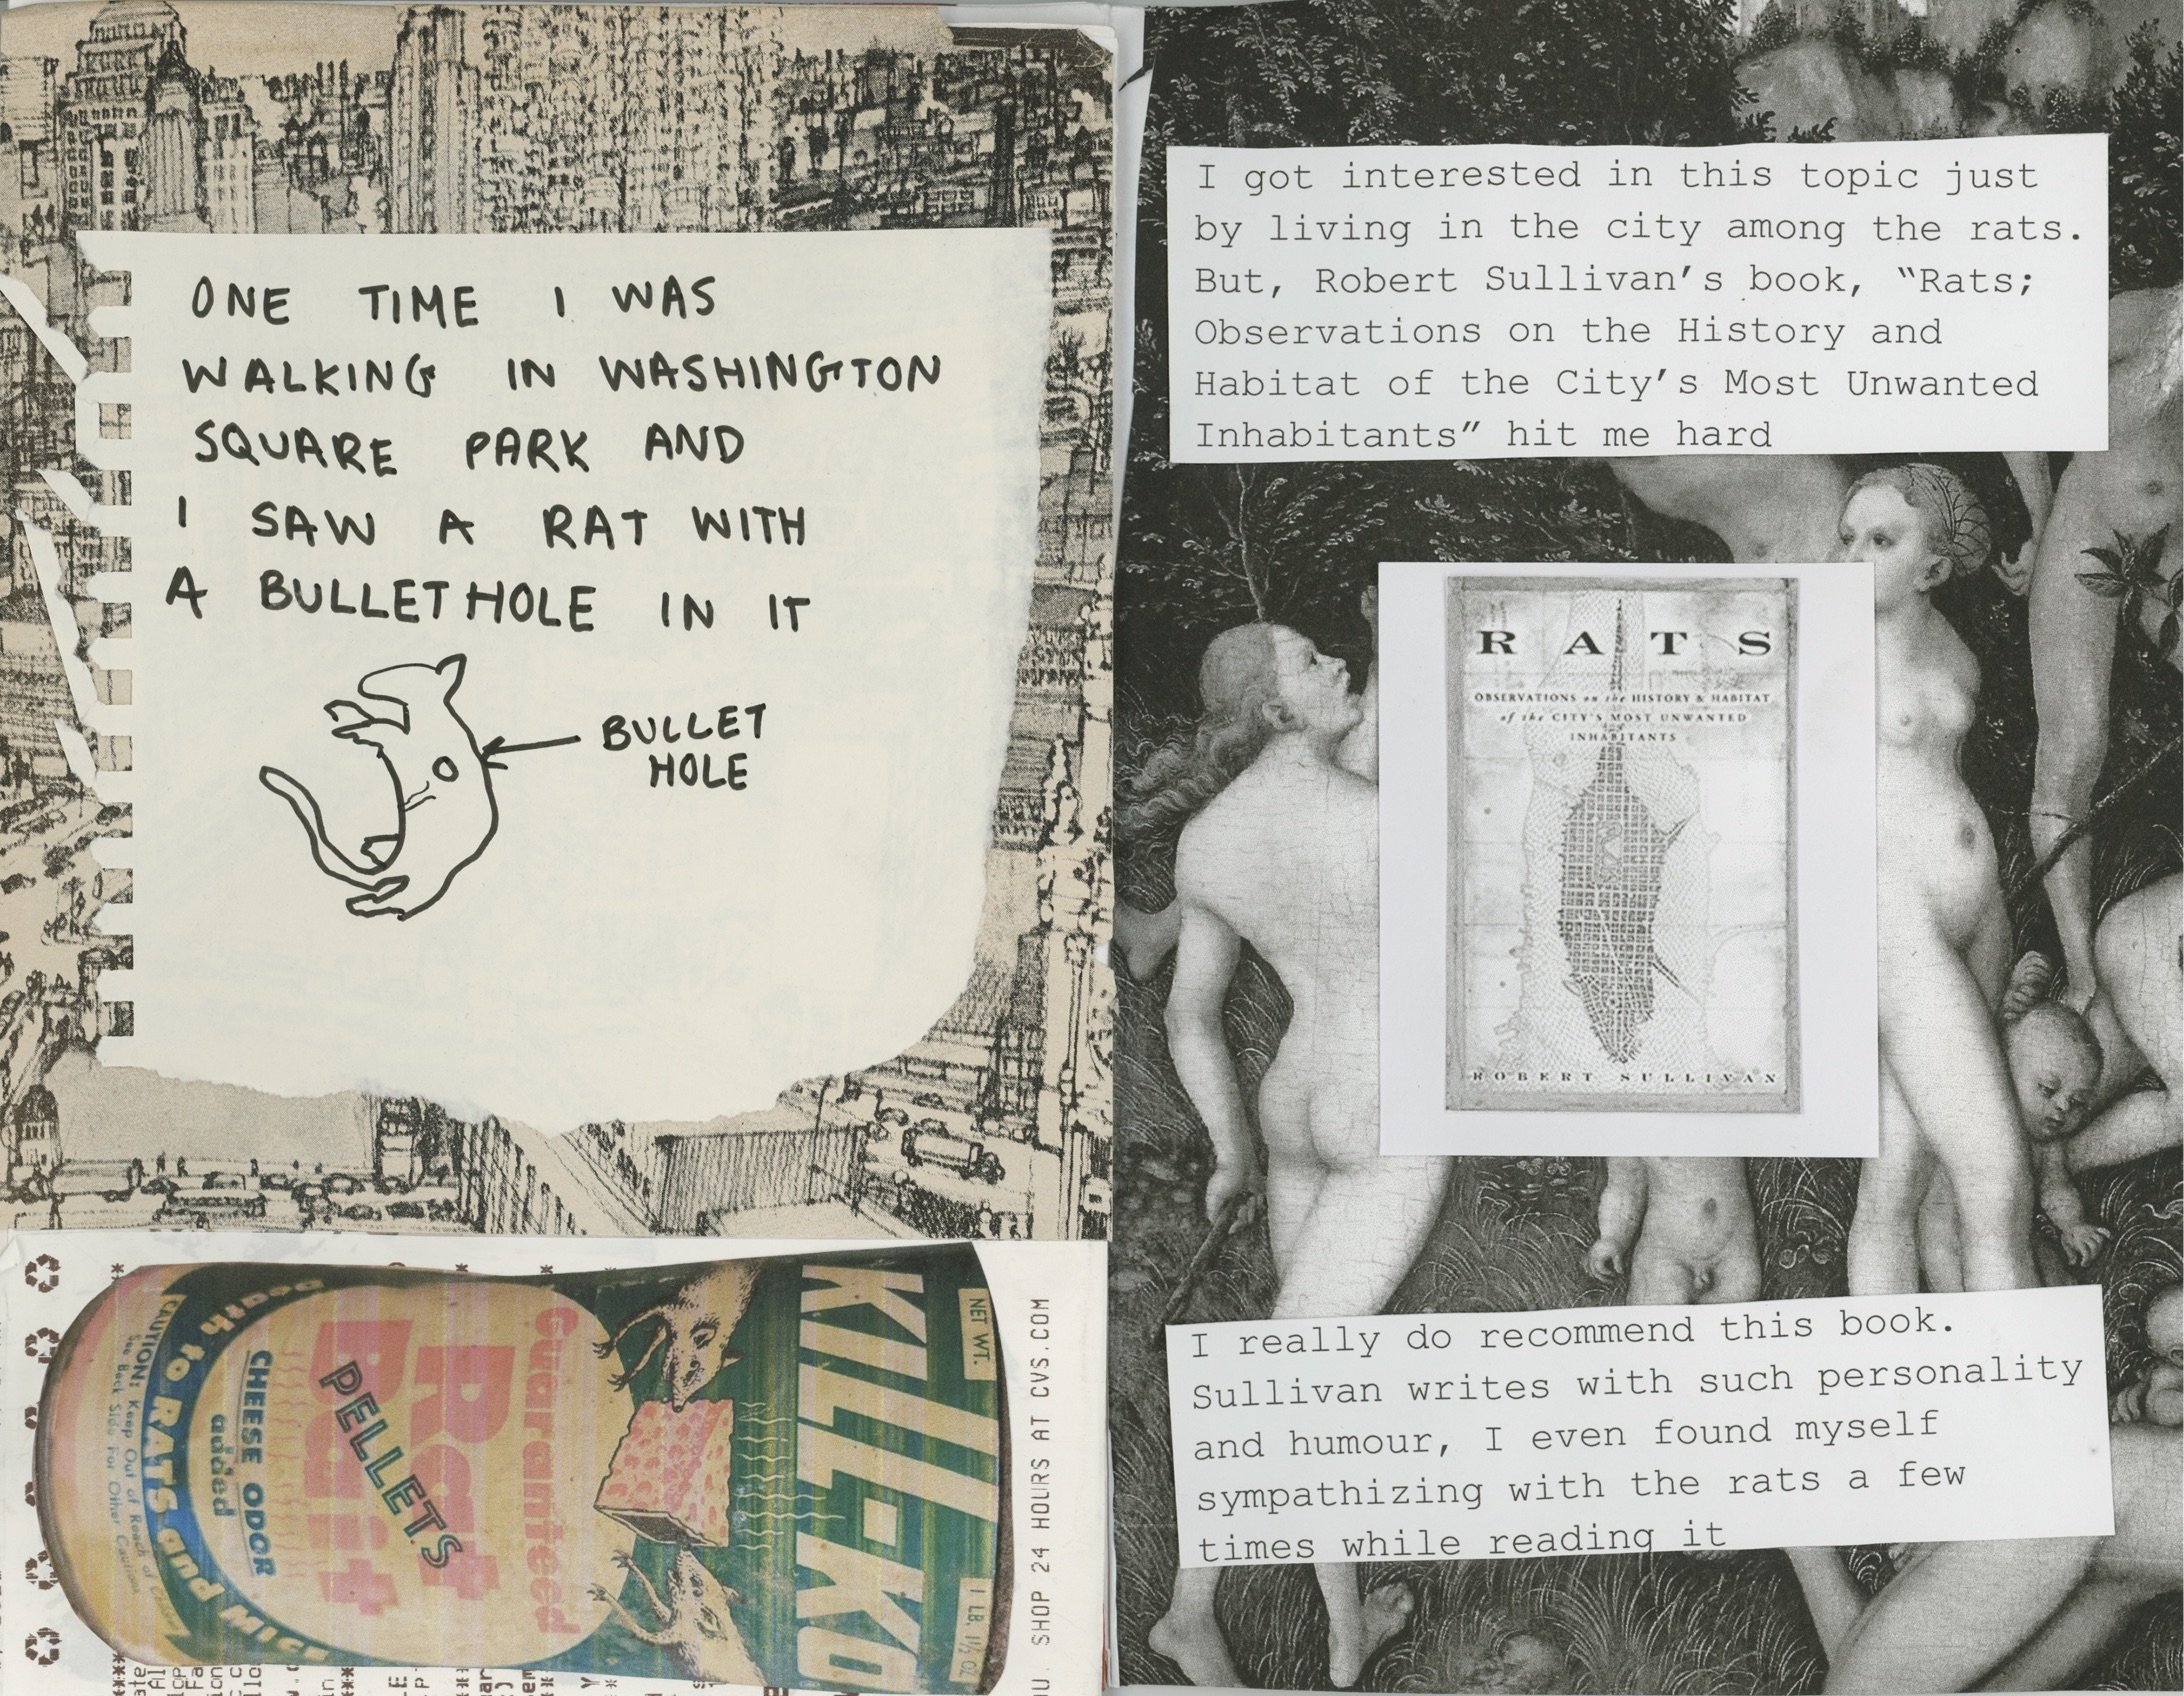 ONE TIME I WAS
WALKING IN WASHINGTON
SQUARE PARK AND
I SAW A RAT WITH
A BULLETHOLE IN IT
BULLET
HOLE
KILL-KO
NET WT.
1 LB. 1½ OZ
Guaranteed
Rat
Bait
PELLETS
CHEESE ODOR
added
Death to RATS and MICE
CAUTION: Keep Out of Reach of Children
See Back Side For Other Cautions
U. SHOP 24 HOURS AT CVS.COM
I got interested in this topic just
by living in the city among the rats.
But, Robert Sullivan’s book, “Rats;
Observations on the History and
Habitat of the City’s Most Unwanted
Inhabitants” hit me hard
RATS
OBSERVATIONS on the HISTORY & HABITAT
of the CITY'S MOST UNWANTED
INHABITANTS
ROBERT SULLIVAN
I really do recommend this book.
Sullivan writes with such personality
and humour, I even found myself
sympathizing with the rats a few
times while reading it